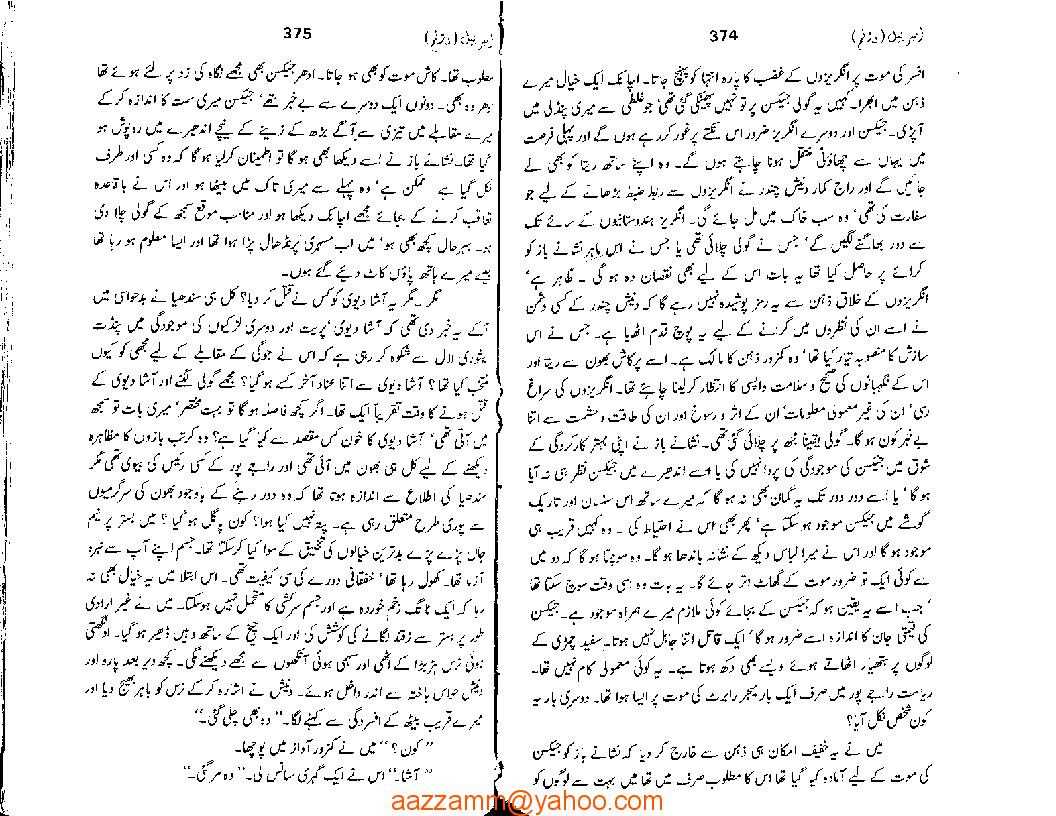 374
افسر کی موت پر انگریزوں کے غضب کا پارہ انتہا کو پہنچ جاتا۔ اچانک ایک خیال میرے
ذہن میں ابھرا۔ کہیں یہ گولی جیکسن پر تو نہیں پھینکی گئی تھی؟ جو غلطی سے میری پنڈلی میں
آ پڑی۔ جیکسن اور دوسرے انگریز ضرور اس نکتے پر غور کر رہے ہوں گے اور پہلی فرصت
میں یہاں سے چھاؤنی منتقل ہونا چاہتے ہوں گے۔ وہ اپنے ساتھ ریتا کو بھی لے
جائیں گے اور راج کمار ونیش چندر نے انگریزوں سے ربط ضبط بڑھانے کے لیے جو
سفارت کی تھی‘ وہ سب خاک میں مل جائے گی۔ انگریز ہندوستانیوں کے سائے تک
سے دور بھاگنے لگیں گے‘ جس نے گولی چلائی تھی یا جس نے اس ماہر نشانے باز کو
کرائے پر حاصل کیا تھا یہ بات اس کے لیے بھی نقصان دہ ہو گی۔ ظاہر ہے‘
انگریزوں کے خلاق ذہن سے یہ رمز پوشیدہ نہیں رہے گا کہ ونیش چندر کے کسی دشمن
نے اسے ان کی نظروں میں گرانے کے لیے یہ پوچ قدم اٹھایا ہے۔ جس نے اس
سازش کا منصوبہ تیار کیا تھا‘ وہ کمزور ذہن کا مالک ہے۔ اسے پرکاش بھون سے ریتا اور
اس کے نگہبانوں کی صحیح و سلامت واپسی کا انتظار کر لینا چاہئے تھا۔ انگریزوں کی سراغ
رسی‘ ان کی غیر معمولی معلومات‘ ان کے اثر و رسوخ اور ان کی طاقت و حشمت سے اتنا
بے خبر کون ہو گا۔ گولی یقینا مجھ پر چلائی گئی تھی۔ نشانے باز نے اپنی بہتر کارکردگی کے
شوق میں جیکسن کی موجودگی کی پروا نہیں کی یا اسے اندھیرے میں جیکسن نظر ہی نہ آیا
ہو گا‘ یا اسے دور دور تک یہ گمان بھی نہ ہو گا کہ میرے ساتھ اس سنسان اور تاریک
گوشے میں جیکسن موجود ہو سکتا ہے‘ پھر بھی اس نے احتیاط کی۔ وہ کہیں قریب ہی
موجود ہو گا اور اس نے میرا لباس دیکھ کے نشانہ باندھا ہو گا۔ وہ سوچتا ہو گا کہ دو میں
سے کوئی ایک تو ضرور موت کے گھاٹ اتر جائے گا۔ یہ بات وہ ہی وقت سوچ سکتا تھا
‘ جب اسے یہ یقین ہو کہ جیکسن کے بجائے کوئی ملازم میرے ہمراہ موجود ہے۔ جیکسن
کی قیمتی جان کا اندازہ اسے ضرور ہو گا‘ ایک قاتل اتنا جاہل نہیں ہوتا۔ سفید چمڑی کے
لوگوں پر ہتھیار اٹھاتے ہوئے ویسے بھی دکھ ہوتا ہے۔ یہ کوئی معمولی کام نہیں تھا۔
ریاست راجے پور میں صرف ایک بار میجر رابرٹ کی موت پر ایسا ہوا تھا۔ دوسری بار یہ
کون شخص نکل آیا؟
میں نے یہ خفیف امکان ہی ذہن سے خارج کر دیا کہ نشانے باز کو جیکسن
کی موت کے لیے آمادہ کیا گیا تھا اس کا مطلوب صرف میں تھا میں بہت سے لوگوں کو
375
مطلوب تھا۔ کاش موت کو بھی ہو جاتا۔ ادھر جیکسن بھی مجھے نگاہ کی زد پر لئے ہوئے تھا
ادھر وہ بھی۔ دونوں ایک دوسرے سے بے خبر تھے‘ جیکسن میری سمت کا اندازہ کر کے
میرے مقابلے میں تیزی سے آگے بڑھ کے زینے کے نیچے اندھیرے میں روپوش ہو
گیا تھا۔ نشانے باز نے اسے دیکھا بھی ہو گا تو اطمینان کر لیا ہو گا کہ وہ کسی اور طرف
نکل گیا ہے ممکن ہے‘ وہ پہلے سے میری تاک میں بیٹھا ہو اور اس نے باقاعدہ
تعاقب کرنے کے بجائے مجھے اچانک دیکھا ہو اور مناسب موقع سمجھ کے گولی چلا دی
ہو۔ بہرحال کچھ بھی ہو‘ میں اب مسہری پر نڈھال پڑا ہوا تھا اور ایسا معلوم ہو رہا تھا
جیسے میرے ہاتھ پاؤں کاٹ دیئے گئے ہوں۔
مگر۔ مگر یہ آشا دیوی کو کس نے قتل کر دیا؟ کل ہی سندھیا نے بدحواسی میں
آ کے یہ خبر دی تھی کہ آشا دیوی‘ پریت اور دوسری لڑکیوں کی موجودگی میں پنڈت
کشوری لال سے شکوہ کر رہی ہے کہ اس نے جوگی کے مقابلے کے لیے مجھی کو کیوں
منتخب کیا تھا؟ آشا دیوی سے اتنا عناد آخر کسے ہو گیا؟ مجھے گولی لگنے اور آشا دیوی کے
قتل ہونے کا وقت تقریباً ایک تھا۔ اگر کچھ فاصلہ ہو گا تو بہت مختصر‘ میری بات تو سمجھ
میں آتی تھی‘ آشا دیوی کا خون کس مقصد سے کیا گیا ہے؟ وہ کرتب بازوں کا مظاہرہ
دیکھنے کے لیے کل ہی بھون میں آئی تھی اور راجے پور کے کسی رئیس کی بیوی تھی مگر
سندھیا کی اطلاع سے اندازہ ہوتا تھا کہ وہ دور رہنے کے باوجود بھون کی سرگرمیوں
سے پوری طرح متعلق رہی ہے۔ پتہ نہیں کیا ہوا؟ کون پاگل ہو گیا؟ میں بستر پر نیم
جاں پڑے پڑے بدترین خیالوں کی تخلیق کے سوا کیا کر سکتا تھا۔ جسم اپنے آپ سے نبرد
آزما تھا۔ کھول رہا تھا‘ خفقانی دورے کی سی کیفیت تھی۔ اس ابتلا میں یہ خیال بھی نہ
رہا کہ ایک ٹانگ زخم خوردہ ہے اور جسم سرکشی کا متحمل نہیں ہو سکتا۔ میں نے غیر ارادی
طور پر بستر سے زقند لگانے کی کوشش کی اور ایک چیخ کے ساتھ وہیں ڈھیر ہو گیا۔ اونگھتی
ہوئی نرس ہڑبڑا کے اٹھی اور سہمی ہوئی آنکھوں سے مجھے دیکھنے لگی۔ کچھ دیر بعد پارو اور
ونیش حواس باختہ سے اندر داخل ہوئے۔ ونیش نے اشارہ کر کے نرس کو باہر بھیج دیا اور
میرے قریب بیٹھ کے افسردگی سے کہنے لگا۔ ’’وہ بھی چلی گئی۔‘‘
’’کون؟‘‘ میں نے کمزور آواز میں پوچھا۔
’’آشا۔‘‘ اس نے ایک گہری سانس لی۔ ’’وہ مر گئی۔‘‘
aazzamm@yahoo.com